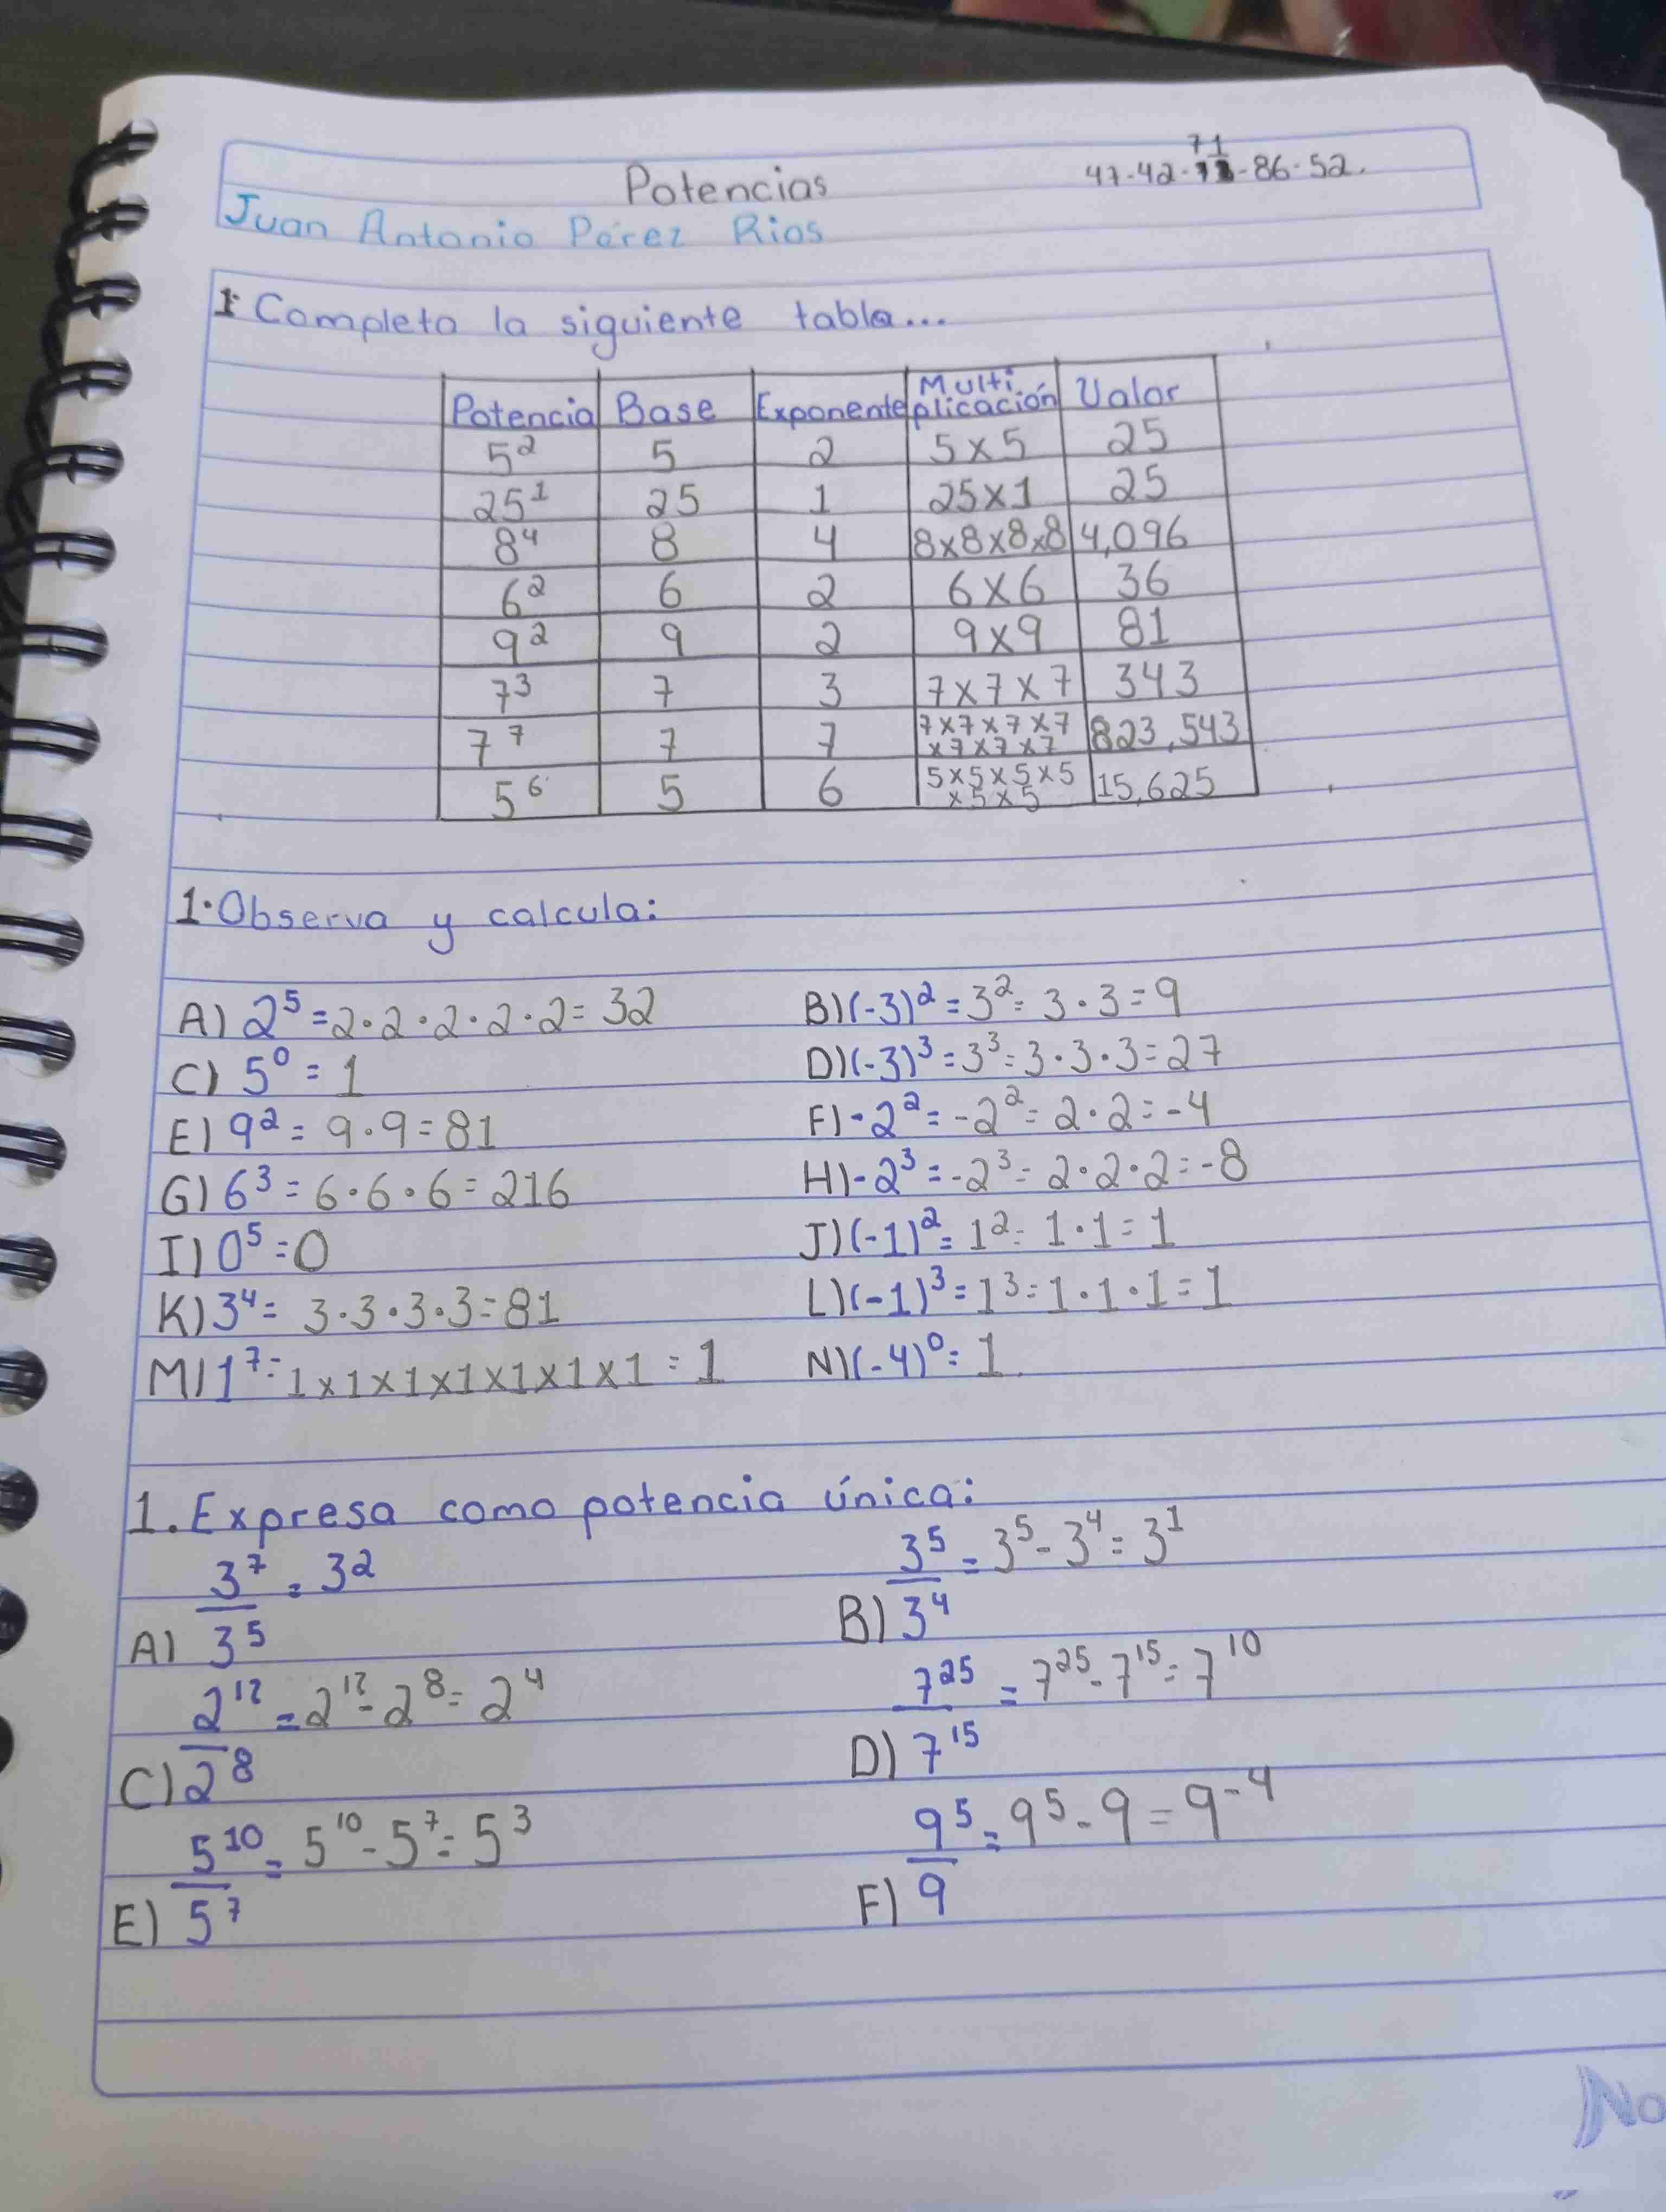 Potencias
47-42-71-86-52.
Juan Antonio Pérez Rios
1. Completa la siguiente tabla...
Potencia Base Exponente Multiplicación Valor
5² 5 2 5x5 25
25¹ 25 1 25x1 25
8⁴ 8 4 8x8x8x8 4,096
6² 6 2 6x6 36
9² 9 2 9x9 81
7³ 7 3 7x7x7 343
7⁷ 7 7 7x7x7x7x7x7x7 823,543
5⁶ 5 6 5x5x5x5x5x5 15,625
1. Observa y calcula:
A) 2⁵=2·2·2·2·2=32 B) (-3)²=3²=3·3=9
C) 5⁰=1 D) (-3)³=3³=3·3·3=27
E) 9²=9·9=81 F) -2²=-2²=2·2=-4
G) 6³=6·6·6=216 H) -2³=-2³=2·2·2=-8
I) 0⁵=0 J) (-1)²=1²=1·1=1
K) 3⁴=3·3·3·3=81 L) (-1)³=1³=1·1·1=1
M) 1⁷=1x1x1x1x1x1x1=1 N) (-4)⁰=1
1. Expresa como potencia única:
A) 3⁷/3⁵=3² B) 3⁵/3⁴=3⁵-3⁴=3¹
C) 2¹²/2⁸=2¹²-2⁸=2⁴ D) 7²⁵/7¹⁵=7²⁵-7¹⁵=7¹⁰
E) 5¹⁰/5⁷=5¹⁰-5⁷=5³ F) 9⁵/9=9⁵-9=9⁻⁴
No